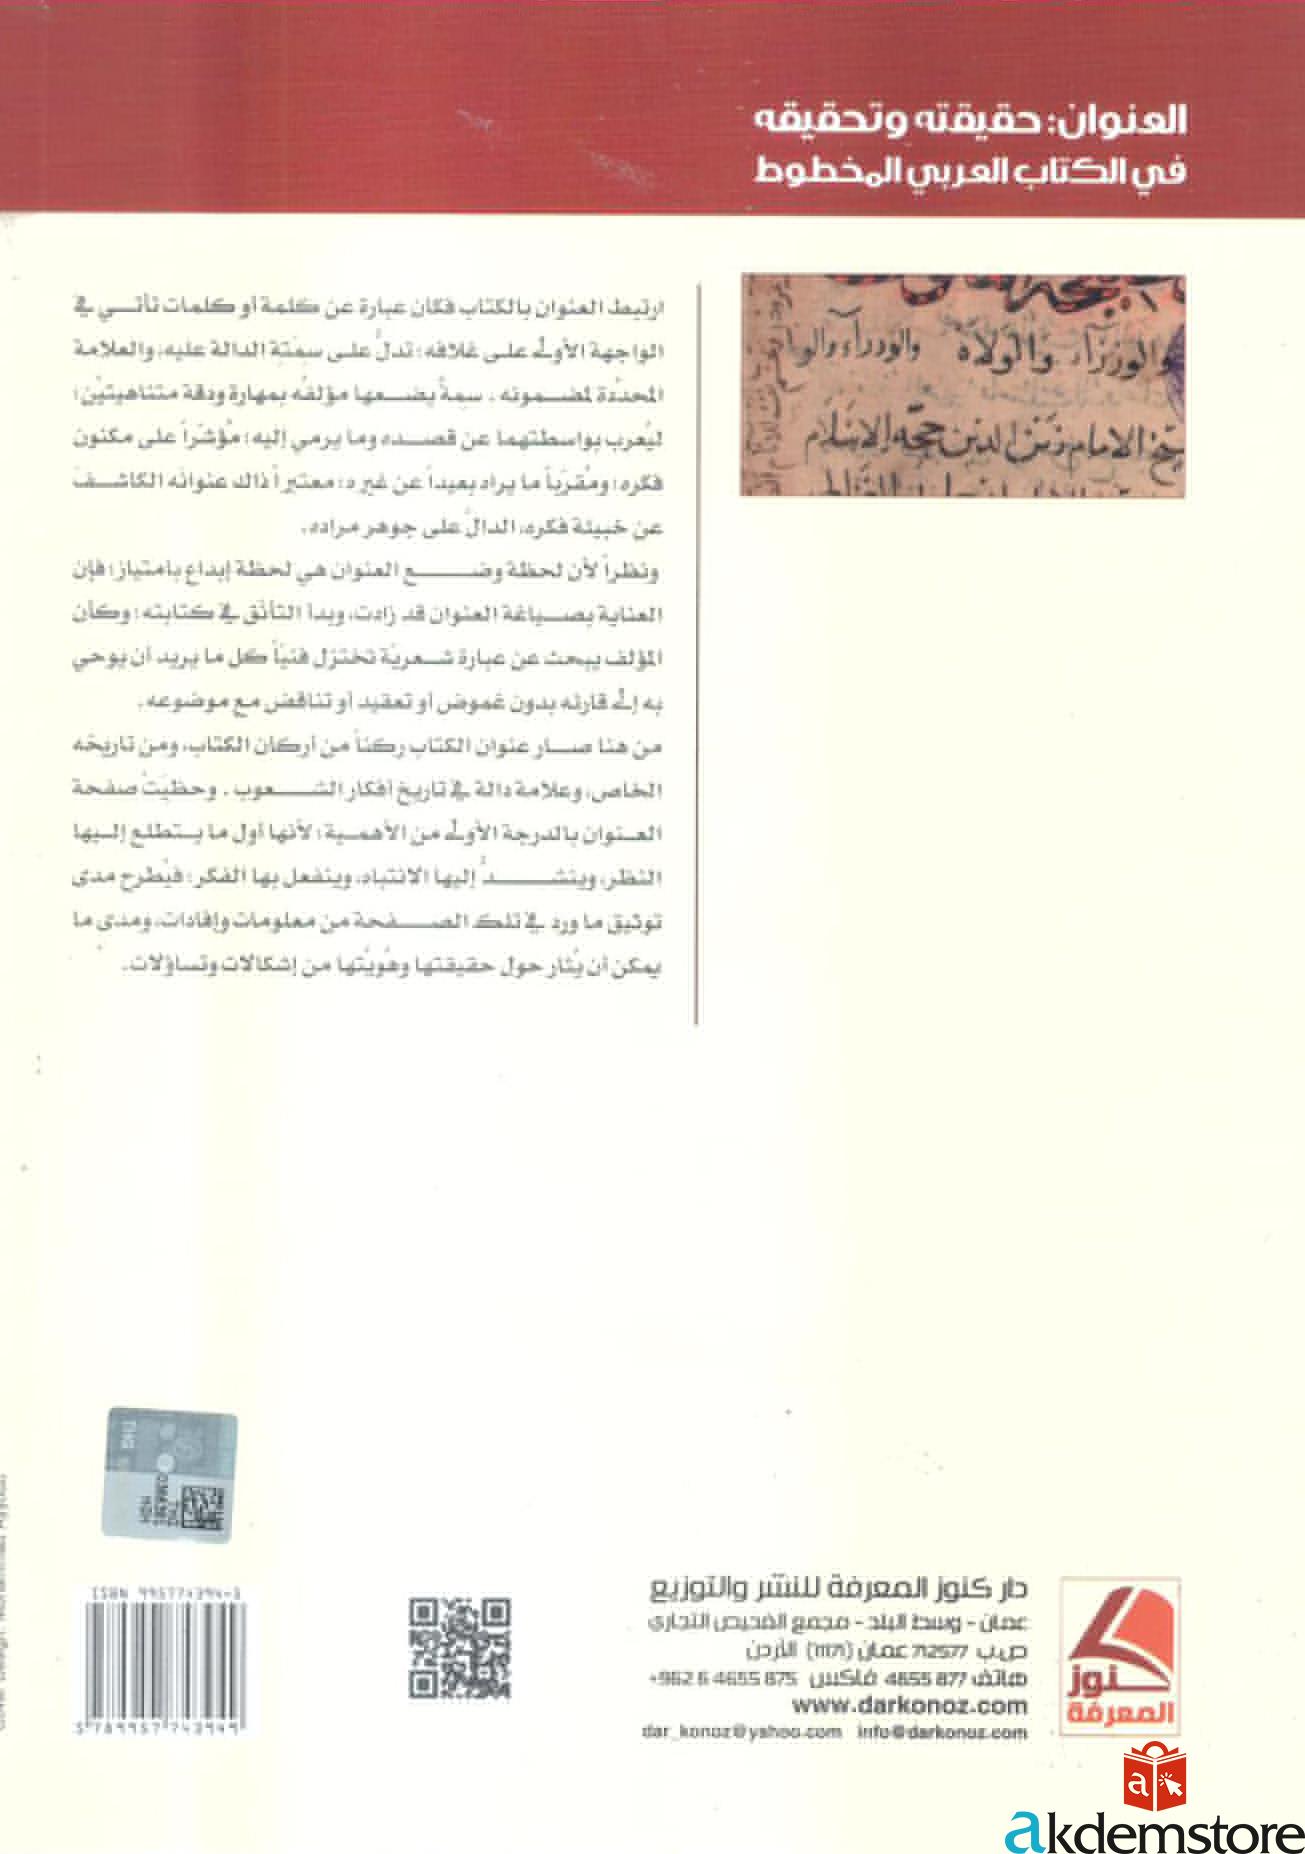 العنوان: حقيقته وتحقيقه
في الكتاب العربي المخطوط
والوزراء والولاه والوزراء والولا
الامام زين الدين حجة الاسلام
ارتبط العنوان بالكتاب فكان عبارة عن كلمة أو كلمات تأتي في
الواجهة الأولى على غلافه؛ تدلّ على سِمَتِهَ الدالة عليه، والعلامة
المحدّدة لمضمونه. سمةٌ يضعها مؤلفُه بمهارة ودقة متناهيتيْن؛
ليُعرب بواسطتهما عن قصده وما يرمي إليه؛ مُؤشّراً على مكنون
فكره؛ ومُقرّباً ما يراد بعيداً عن غيره؛ معتبراً ذاك عنوانَه الكاشفَ
عن خبيئة فكره، الدالّ على جوهر مراده.
ونظراً لأن لحظة وضع العنوان هي لحظة إبداع بامتياز؛ فإن
العناية بصياغة العنوان قد زادت، وبدأ التأنّق في كتابته؛ وكأن
المؤلف يبحث عن عبارة شعريّة تختزل فنيّاً كل ما يريد أن يوحي
به إلى قارئه بدون غموض أو تعقيد أو تناقض مع موضوعه.
من هنا صار عنوان الكتاب ركناً من أركان الكتاب، ومن تاريخه
الخاص، وعلامة دالة في تاريخ أفكار الشعوب. وحظيَتْ صفحة
العنوان بالدرجة الأولى من الأهمية؛ لأنها أول ما يتطلع إليها
النظر، وينشدُّ إليها الانتباه، وينفعل بها الفكر؛ فيُطرح مدى
توثيق ما ورد في تلك الصفحة من معلومات وإفادات، ومدى ما
يمكن أن يُثار حول حقيقتها وهُويتُها من إشكالات وتساؤلات.
دار كنوز المعرفة للنشر والتوزيع
عمان - وسط البلد - مجمع الفحيص التجاري
ص.ب 712577 عمان (11171) الأردن
هاتف 4655 877 فاكس 875 4655 6 962+
www.darkonoz.com
dar_konoz@yahoo.com info@darkonoz.com
كنوز
المعرفة
9789957743949
akdemstore